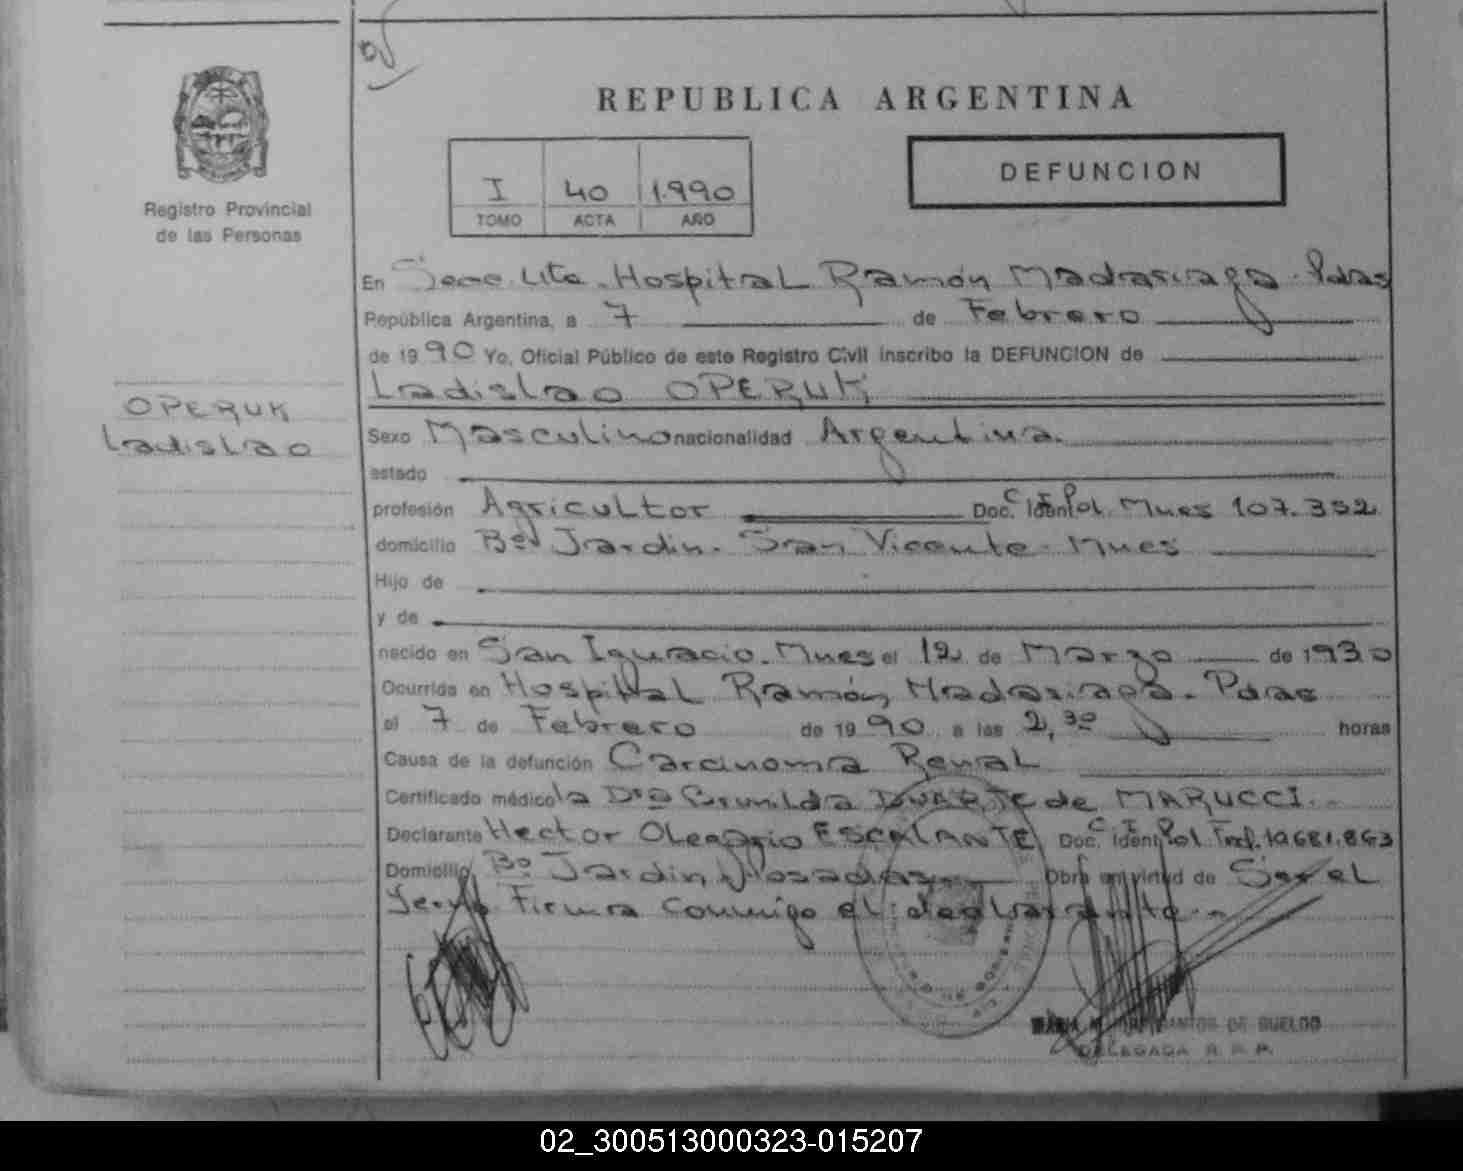 REPUBLICA ARGENTINA
DEFUNCION
I 40 1.990
TOMO ACTA AÑO
Registro Provincial
de las Personas
En Hospital Ramón Madariaga. Pdas
República Argentina, a 7 de Febrero
de 1990 Yo, Oficial Público de este Registro Civil inscribo la DEFUNCION de
Ladislao OPERUK
OPERUK
Ladislao
Sexo Masculino nacionalidad Argentina.
estado
profesión Agricultor Doc. Ident. C.I. Pol. Mnes 107.352
domicilio Bº Jardin. San Vicente. Mnes
Hijo de
y de
nacido en San Ignacio. Mnes el 12 de Marzo de 1930
Ocurrida en Hospital Ramón Madariaga. Pdas
el 7 de Febrero de 1990 a las 2,30 horas
Causa de la defunción Carcinoma Renal
Certificado médico la Dra DUARTE de MARUCCI.
Declarante Hector ESCALANTE Doc. Ident. C.I. Pol. Fed. 10.681.863
Domicilio Bº Jardin Posadas Obra en virtud de Ser el
Firma conmigo el declarante
DE SUELDO
DELEGADA R. P. P.
02_300513000323-015207